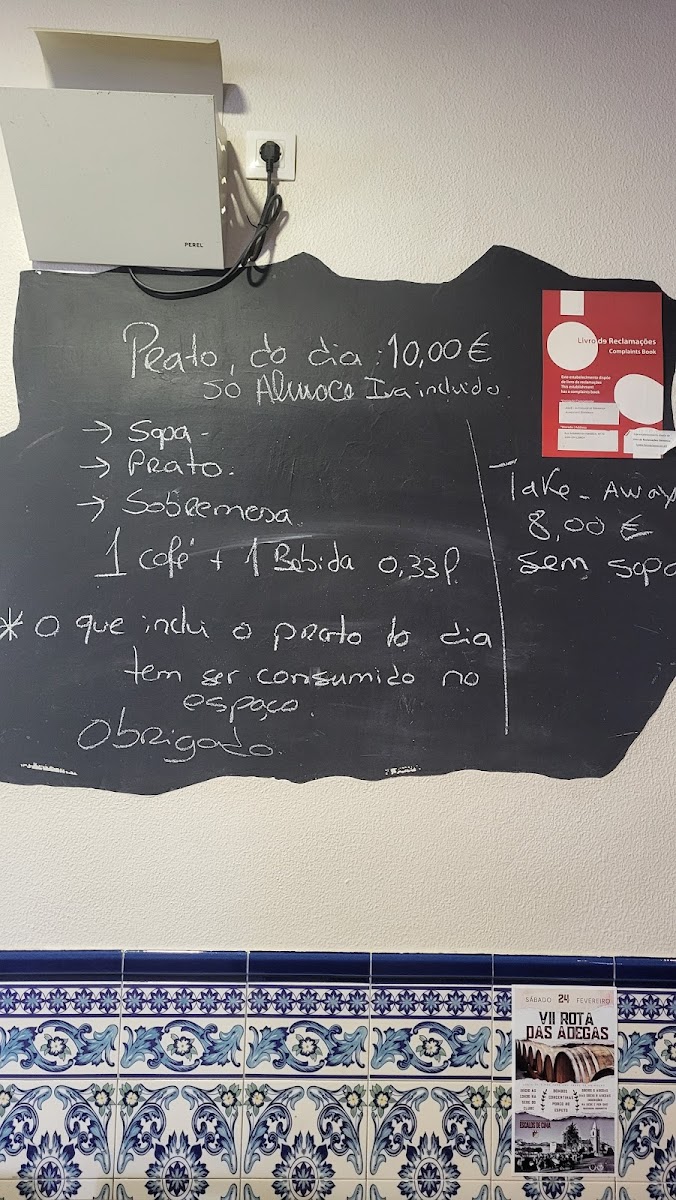 PEREL
Prato, do dia: 10,00€
só Almoço Iva incluido.
→ Sopa-
→ Prato.
→ Sobremesa.
1 café + 1 Bebida 0,33l.
* O que inclui o prato do dia
tem ser consumido no
espaço.
Obrigado.
Take-Away
8,00€
sem sopa
Livro de Reclamações
Complaints Book
Este estabelecimento dispõe
de livro de reclamações
This establishment
has a complaints book
SÁBADO 24 FEVEREIRO
VII ROTA
DAS ADEGAS
ESCALOS DE CIMA